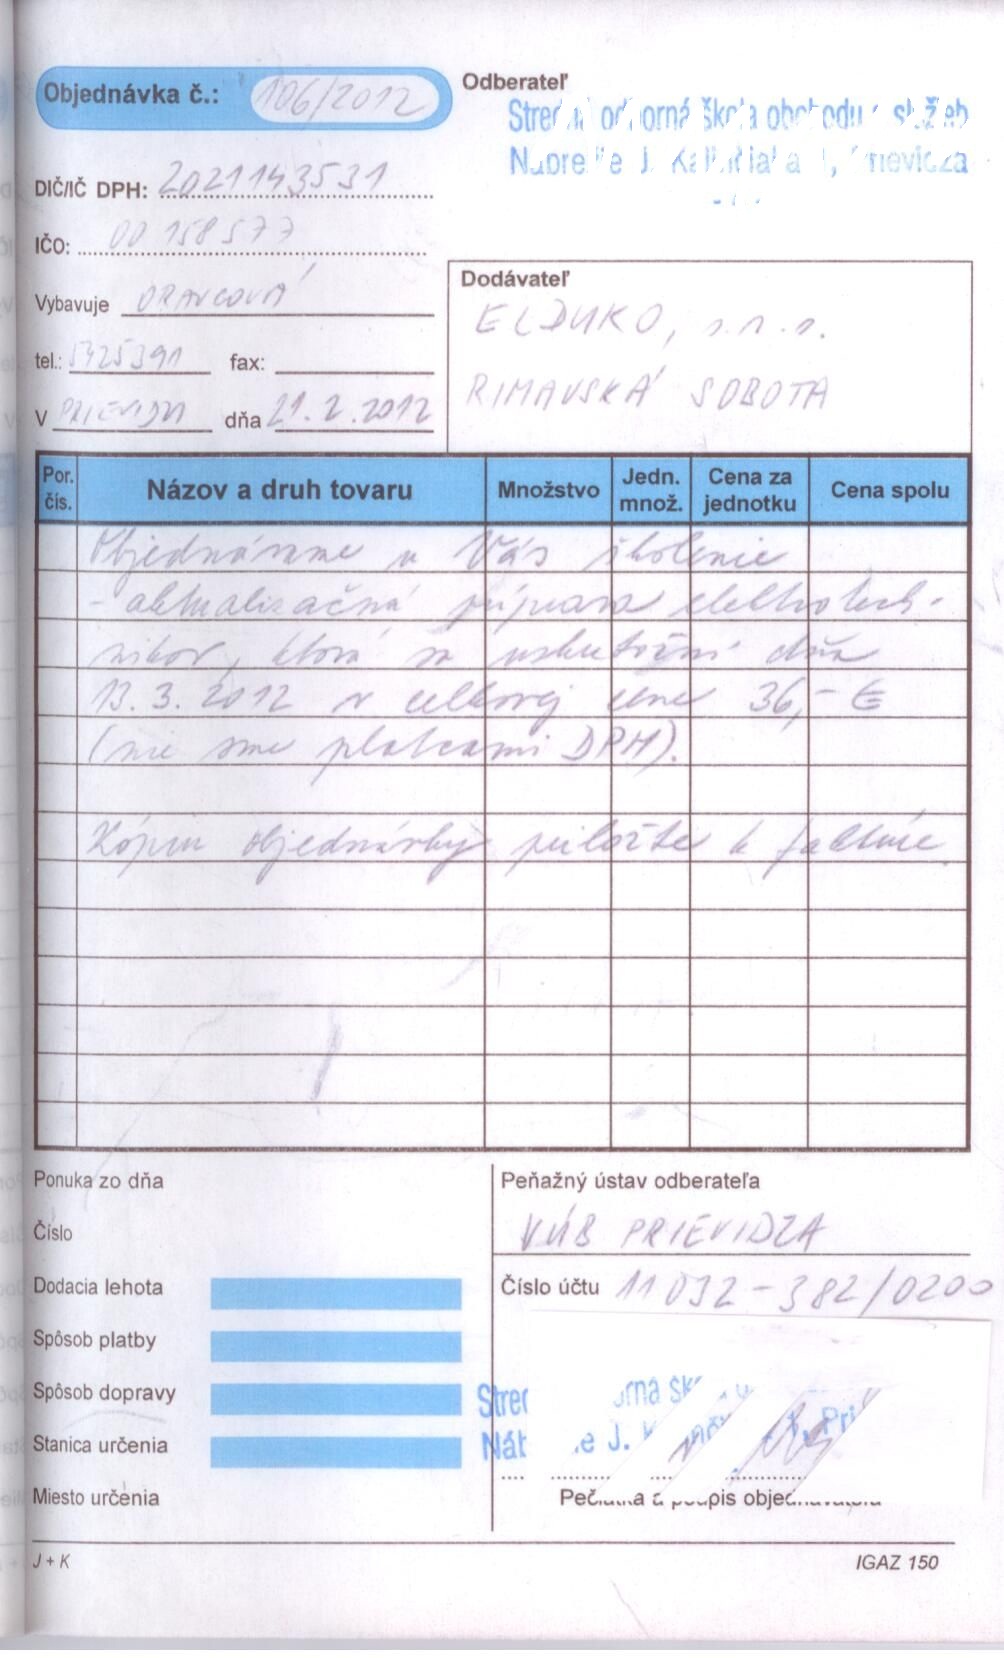 Objednávka č.: 106/2012
Odberateľ
odborná škola obchodu služieb
J.
DIČ/IČ DPH: 2021143531
IČO: 00158577
Vybavuje ORAVCOVÁ
Dodávateľ
ELDUKO, s.r.o.
tel.: 5425391 fax:
RIMAVSKÁ SOBOTA
V PRIEVIDZI dňa 21.2.2012
Por. čís. Názov a druh tovaru Množstvo Jedn. množ. Cena za jednotku Cena spolu
Objednávame u Vás školenie
- aktualizačná príprava elektrotech-
nikov, ktorá sa uskutoční dňa
13.3.2012 v celkovej cene 36,- €
(nie sme platcami DPH).
Kópiu objednávky priložte k faktúre.
Ponuka zo dňa
Peňažný ústav odberateľa
VÚB PRIEVIDZA
Číslo
Dodacia lehota
Číslo účtu 11032-382/0200
Spôsob platby
Spôsob dopravy
Stanica určenia
Miesto určenia
Pečiatka a podpis objednávateľa
J + K
IGAZ 150